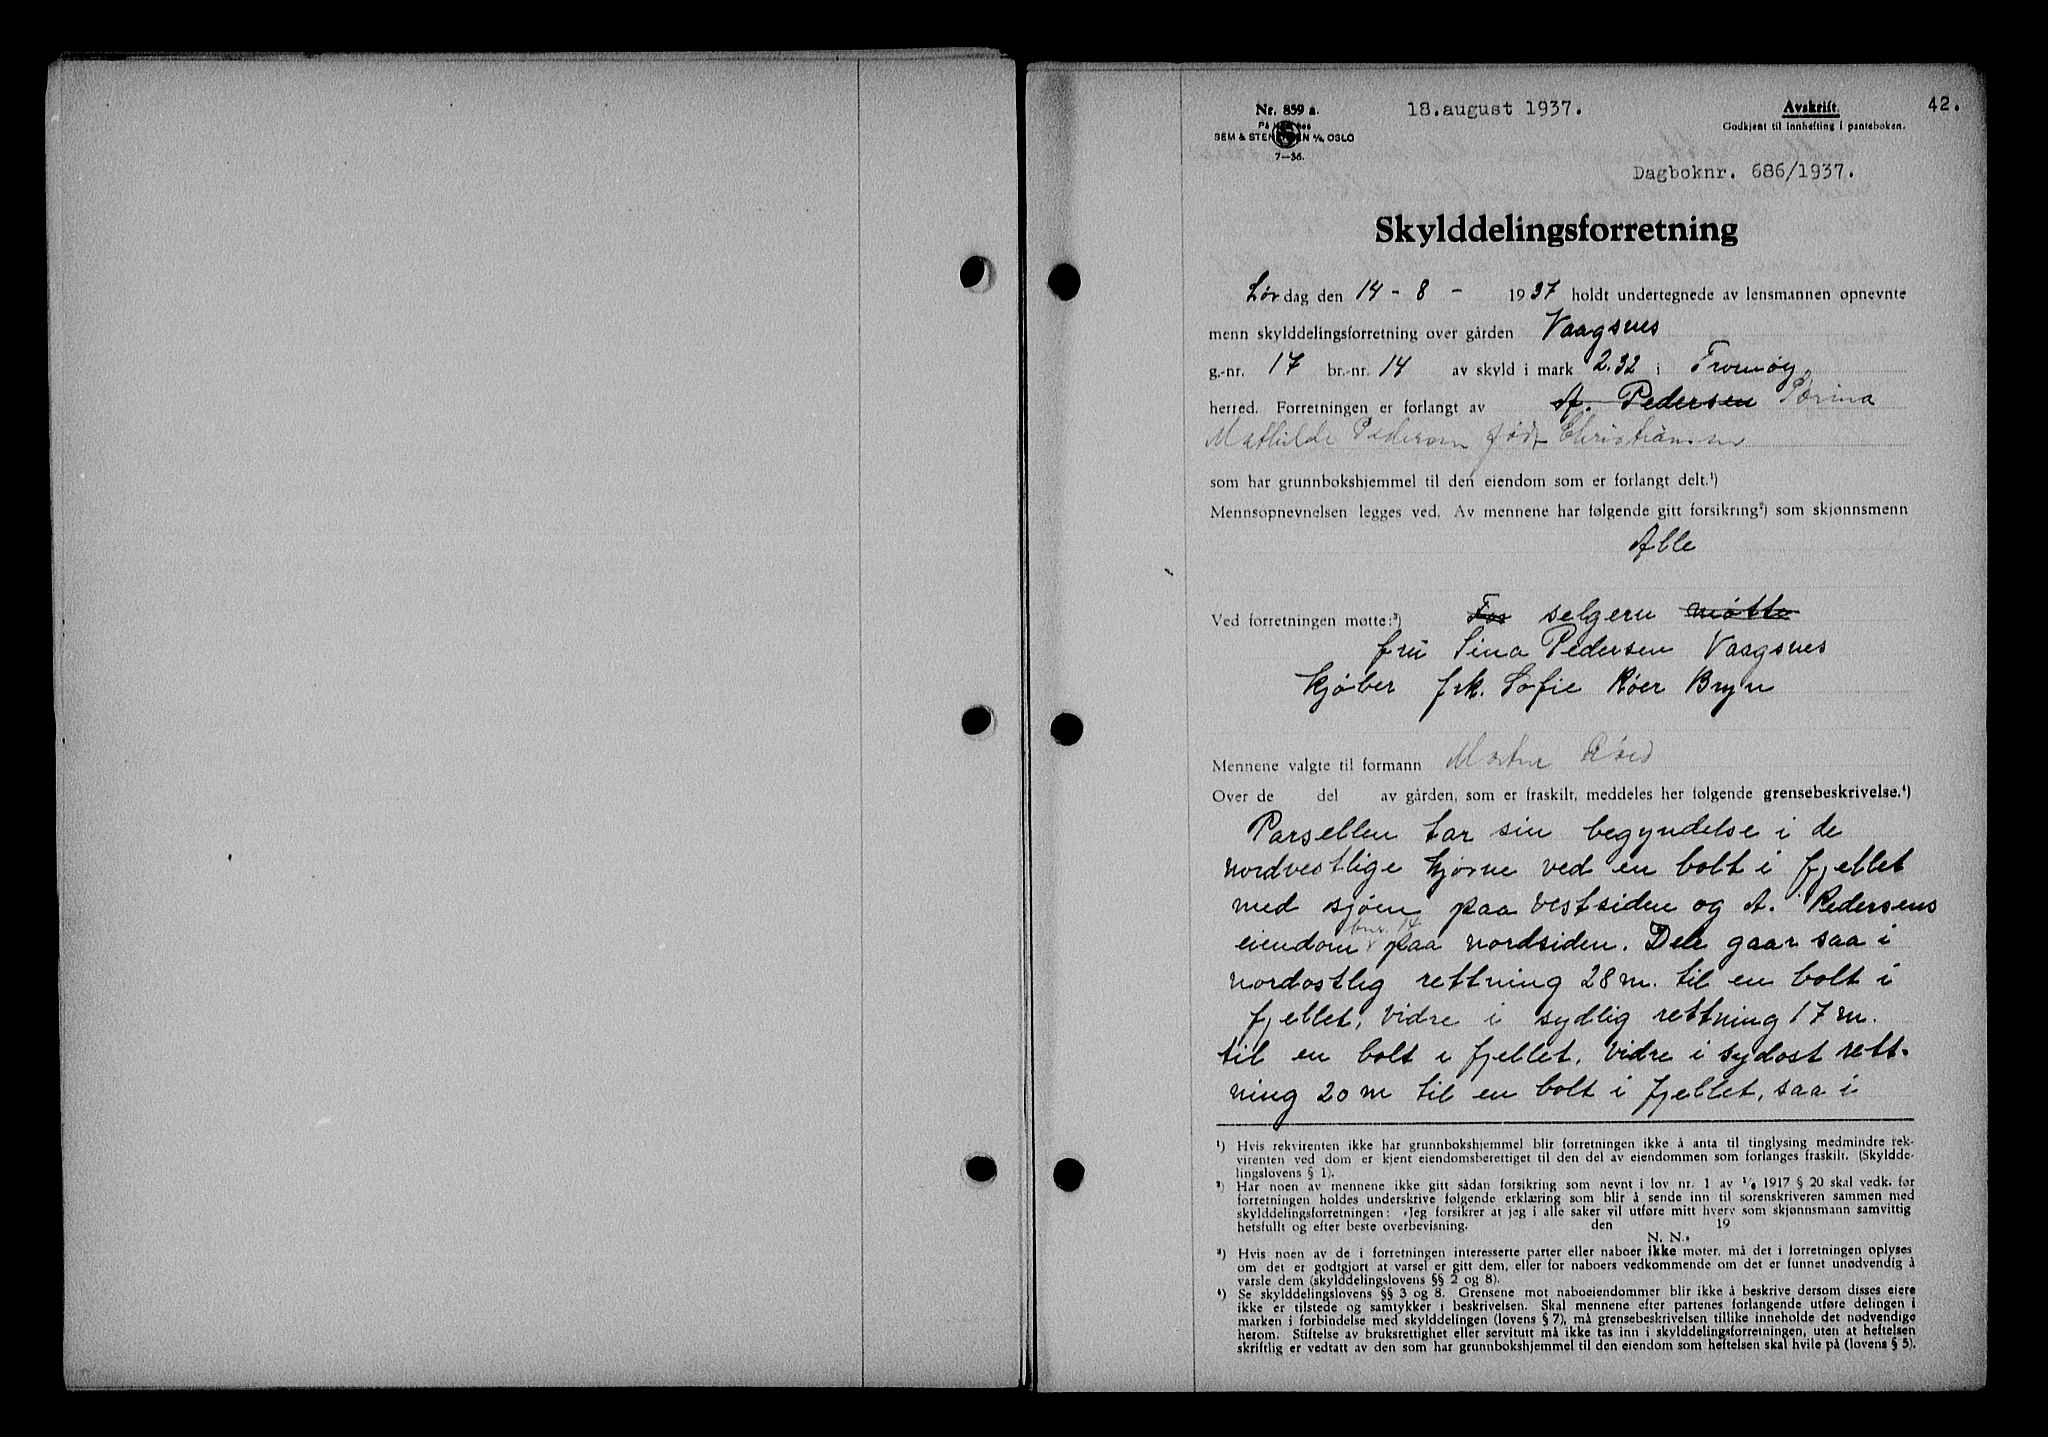 Nr. 859 a.
18. august 1937.
Avskrift.
42.
Godkjent til innhefting i panteboken.
SEM & STENERSEN A/S OSLO
7—36.
Dagboknr. 686/1937.
Skylddelingsforretning
Lørdag den 14 - 8 - 1937 holdt undertegnede av lensmannen opnevnte
menn skylddelingsforretning over gården Vaagsnes
g.-nr. 17 br.-nr. 14 av skyld i mark 2.32 i Tromøy
herred. Forretningen er forlangt av A. Pedersen Sørina
Mathilde Pedersen född Christiansen
som har grunnbokshjemmel til den eiendom som er forlangt delt.¹)
Mennsopnevnelsen legges ved. Av mennene har følgende gitt forsikring²) som skjønnsmenn
Alle
Ved forretningen møtte:³) For selgern møtte
fru Sina Pedersen Vaagsnes
kjøber frk. Sofie Røer Bryn
Mennene valgte til formann
Over de del av gården, som er fraskilt, meddeles her følgende grensebeskrivelse.⁴)
Parsellen tar sin begyndelse i de
nordvestlige hjørne ved en bolt i fjellet
med sjøen paa vestsiden og A. Pedersens
eiendom bnr. 14 paa nordsiden. Dele gaar saa i
nordostlig rettning 28 m. til en bolt i
fjellet, vidre i sydlig rettning 17 m.
til en bolt i fjellet, vidre i sydost rett-
ning 20 m til en bolt i fjellet, saa i
¹) Hvis rekvirenten ikke har grunnbokshjemmel blir forretningen ikke å anta til tinglysing medmindre rek-
virenten ved dom er kjent eiendomsberettiget til den del av eiendommen som forlanges fraskilt. (Skyldde-
lingslovens § 1).
²) Har noen av mennene ikke gitt sådan forsikring som nevnt i lov nr. 1 av 1/6 1917 § 20 skal vedk. før
forretningen holdes underskrive følgende erklæring som blir å sende inn til sorenskriveren sammen med
skylddelingsforretningen: „Jeg forsikrer at jeg i alle saker vil utføre mitt hverv som skjønnsmann samvittig
hetsfullt og efter beste overbevisning. den 19
N. N.“
³) Hvis noen av de i forretningen interesserte parter eller naboer ikke møter, må det i forretningen oplyses
om det er godtgjort at varsel er gitt dem, eller for naboers vedkommende om det er funnet unødvendig å
varsle dem (skylddelingslovens §§ 2 og 8).
⁴) Se skylddelingslovens §§ 3 og 8. Grensene mot naboeiendommer blir ikke å beskrive dersom disses eiere
ikke er tilstede og samtykker i beskrivelsen. Skal mennene efter partenes forlangende utføre delingen i
marken i forbindelse med skylddelingen (lovens § 7), må grensebeskrivelsen tillike inneholde det nødvendige
herom. Stiftelse av bruksrettighet eller servitutt må ikke tas inn i skylddelingsforretningen, uten at heftelsen
skriftlig er vedtatt av den som har grunnbokshjemmel til den eiendom som heftelsen skal hvile på (lovens § 5).